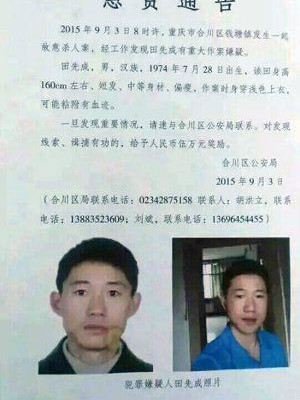 悬赏通告
2015年9月3日8时许，重庆市合川区钱塘镇发生一起
故意杀人案，经工作发现田先成有重大作案嫌疑。
田先成，男，汉族，1974年7月28日出生，该田身高
160cm左右、短发、中等身材、偏瘦，作案时身穿浅色上衣，
可能粘附有血迹。
一旦发现重要情况，请速与合川区公安局联系。对发现
线索、缉捕有功的，给予人民币伍万元奖励。
合川区公安局
2015年9月3日
（合川区局联系电话：02342875158 联系人：胡洪立，电
话：13883523609；刘斌，联系电话：13696454455）
犯罪嫌疑人田先成照片